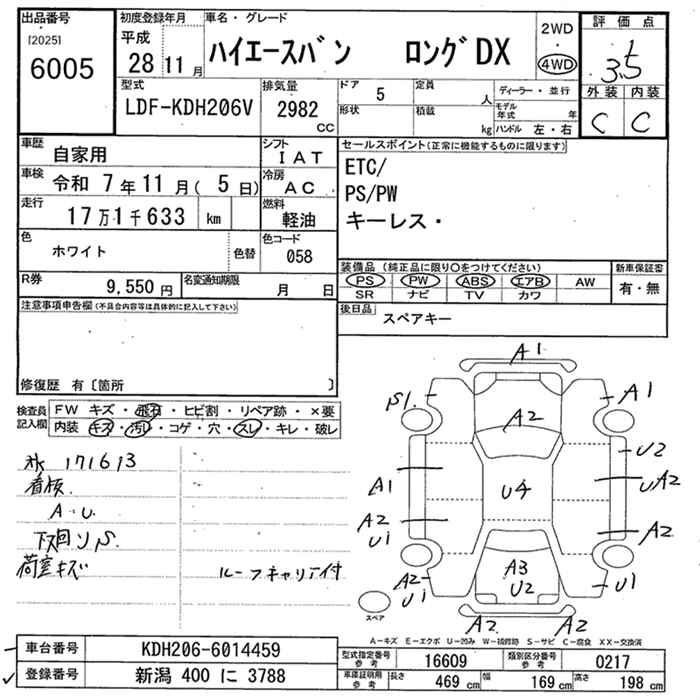 出品番号
[2025]
6005
初度登録年月
平成
28 11 月
車名・グレード
ハイエースバン ロングDX
2WD
・
4WD
評価点
3.5
外装 内装
C C
型式
LDF-KDH206V
排気量
2982
CC
ドア 5
形状
定員 人
積載 kg
ディーラー・並行
モデル年式 年
ハンドル 左・右
車歴
自家用
シフト
IAT
車検
令和 7年 11月( 5日)
冷房
AC
走行
17万1千633 km
燃料
軽油
色
ホワイト
色替
色コード
058
R券
9,550円
名変通知期限
月 日
セールスポイント(正常に機能するものに限ります)
ETC/
PS/PW
キーレス・
装備品(純正品に限り〇をつけてください)
PS PW ABS エアB AW
SR ナビ TV カワ
新車保証書
有・無
後日品
スペアキー
注意事項申告欄(不具合内容等は具体的に記入して下さい)
修復歴 有〔箇所 〕
検査員記入欄
FW キズ・飛石・ヒビ割・リペア跡・×要
内装 キズ・汚レ・コゲ・穴・スレ・キレ・破レ
171613
看板
A・U
下回りS
荷室キズ
ルーフキャリア付
A1
S1
A1
A2
U2
A1
U4
UA2
A2
U1
A2
A3
U2
A2
U1
U1
A2
A2
スペア
A-キズ E-エクボ U-凹み W-補修跡 S-サビ C-腐食 XX-交換済
車台番号 KDH206-6014459
登録番号 新潟 400 に 3788
型式指定番号 参考 16609
類別区分番号 参考 0217
車庫証明用 参考 長さ 469 cm 幅 169 cm 高さ 198 cm